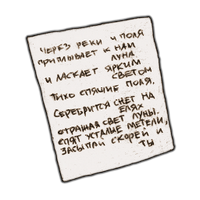 ЧЕРЕЗ РЕКИ И ПОЛЯ
ПРИПЛЫВАЕТ К НАМ
ЛУНА
И ЛАСКАЕТ ЯРКИМ
СВЕТОМ
ТИХО СПЯЩИЕ ПОЛЯ.
СЕРЕБРИТСЯ СНЕГ НА
ЕЛЯХ
ОТРАЖАЯ СВЕТ ЛУНЫ.
СПЯТ УСТАЛЫЕ МЕТЕЛИ,
ЗАСЫПАЙ СКОРЕЙ И
ТЫ